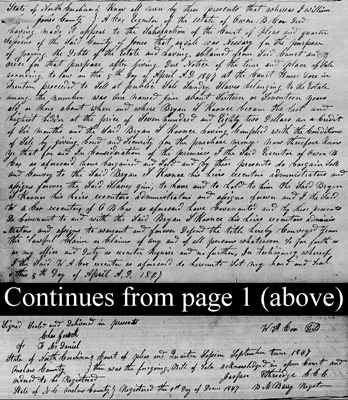 State of North Carolina, Know all men by these presents that whereas I William
Jones County } A Cox Executor of the estate of Owen B Cox Decd
having made it appear to the Satisfaction of the Court of Pleas and quarter
Sessions of the Said County of Jones that a Sale was necessary for the purpose
of paying the Debts of the Estate and having obtained from Said Court an
order for that purpose after giving Due Notice of the time and place of Sale
according to law on the 5th Day of April A.D. 1847 at the Court House Door in
Trenton proceeded to Sell at public Sale Sundry Slaves belonging to the Estate
among the number was one named Jim about Sixteen or Seventeen years
old, or there about when and where Bryan S Koonce became the last and
highest bidder at the price of Seven hundred and Eighty two Dollars on a Credit
of Six months and the Said Bryan S Koonce having Complied with the Conditions
of Sale by giving bond and Security for the purchase money Now therefore know
that for and in Consideration of the premises of the Said Executor of Owen B
Cox as aforesaid have bargained and Sold and by these presents do bargain Sell
and Convey to the Said Bryan S Koonce his heirs executors administrators and
assigns forever the Said Slave Jim, to have and to hold to him the Said Bryan
S Koonce his heirs executors administrators and assigns forever and I the Said
Cox as executor of O B Cox as aforesaid have Covenanted and by these presents
Do Covenant to and with the Said Bryan S Koonce his heirs executors adminis
trators and assigns to warrant and forever Defend the title hereby Conveyed from
the lawful Claim or Claims of any and of all persons whatsoever So far forth as
my office and Duty as executor Require and no further, In testimony whereof
I the Said W A Cox executor as aforesaid do hereunto Set my hand and Seal
this 5th Day of April A.D. 1847
Continues from page 1 (above)
Signed Sealed and Delivered in presents
W A Cox Seal
Chas Gerock
of R McDaniel
State of North Carolina Court of pleas and Quarter Session September term 1847
Onslow County } then was the foregoing Bill of Sale acknowledged in open Court and
ordered to be Registered
Jasper Etheredge C.C.C
State of N C Onslow County } Registered the 1st Day of Decm 1847